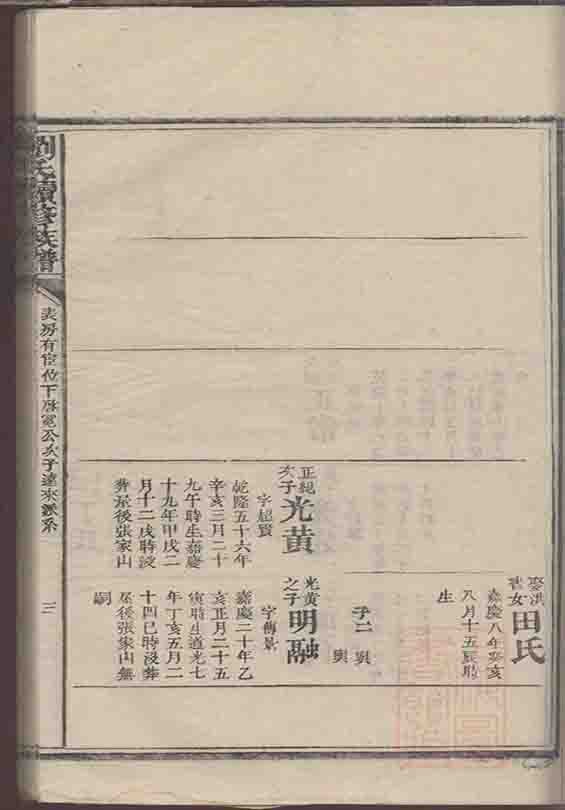 劉氏續修族譜
次子達來派系
三
娶洪
女田氏
嘉慶八年癸亥
八月十五辰時
生
子二
興
興
正紀
次子光黃
字超賢
乾隆五十六年
辛亥三月二十
九午時生嘉慶
十九年甲戌二
月十二戌時沒
葬屋後張家山
光黃
之子明融
字傳景
嘉慶二十年乙
亥正月二十五
寅時生道光七
年丁亥五月二
十四巳時沒葬
屋後張家山無
嗣